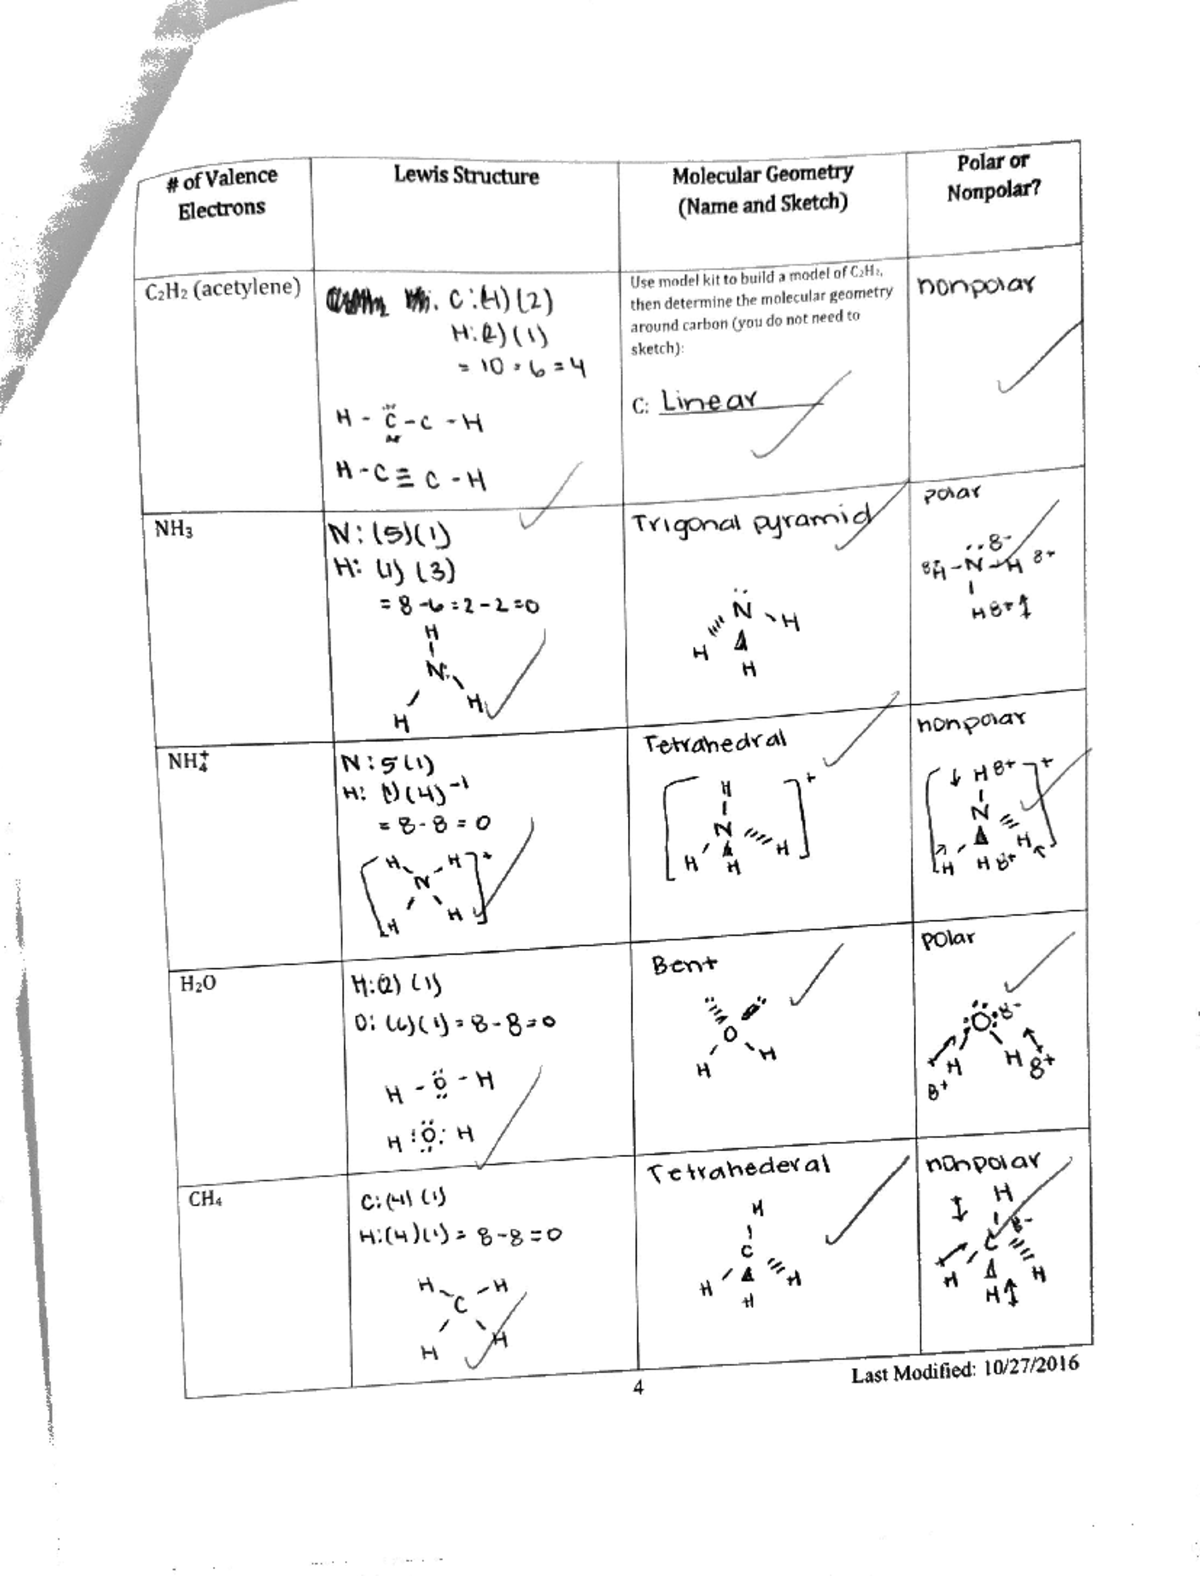 # of Valence
Electrons
Lewis Structure
Molecular Geometry
(Name and Sketch)
Polar or
Nonpolar?
C₂H₂ (acetylene)
C:(4)(2)
H:(2)(1)
= 10 - 6 = 4
H - C - C - H
H - C ≡ C - H
Use model kit to build a model of C₂H₂,
then determine the molecular geometry
around carbon (you do not need to
sketch):
C: Linear
nonpolar
NH₃
N: (5)(1)
H: (1) (3)
= 8 - 6 = 2 - 2 = 0
H
N:
H
H
Trigonal pyramid
N
H
H
H
polar
δ-
δ+ H - N - H δ+
H δ+
NH₄⁺
N: 5 (1)
H: (1)(4) -1
= 8 - 8 = 0
H H +
N
H H
Tetrahedral
H +
N
H H H
nonpolar
H δ+ +
N
H H δ+ H
H₂O
H:(2) (1)
O: (6)(1) = 8 - 8 = 0
H - Ö - H
H :Ö: H
Bent
O
H H
polar
:Ö: δ-
H H
δ+ δ+
CH₄
C: (4) (1)
H:(4)(1) = 8 - 8 = 0
H H
C
H H
Tetrahederal
H
C
H H H
nonpolar
H
C δ-
H H H
4
Last Modified: 10/27/2016